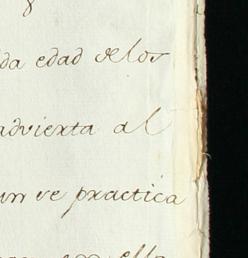 da edad de los
advierta al
un se practica
con ella